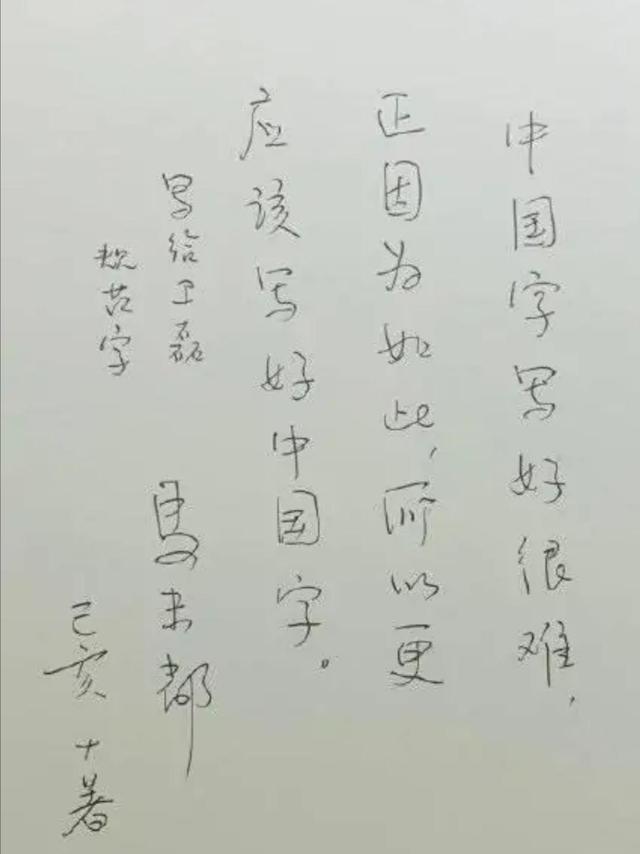 中国字写好很难，
正因为如此，所以更
应该写好中国字。
写给卫磊
规范字
马未都
己亥 暑